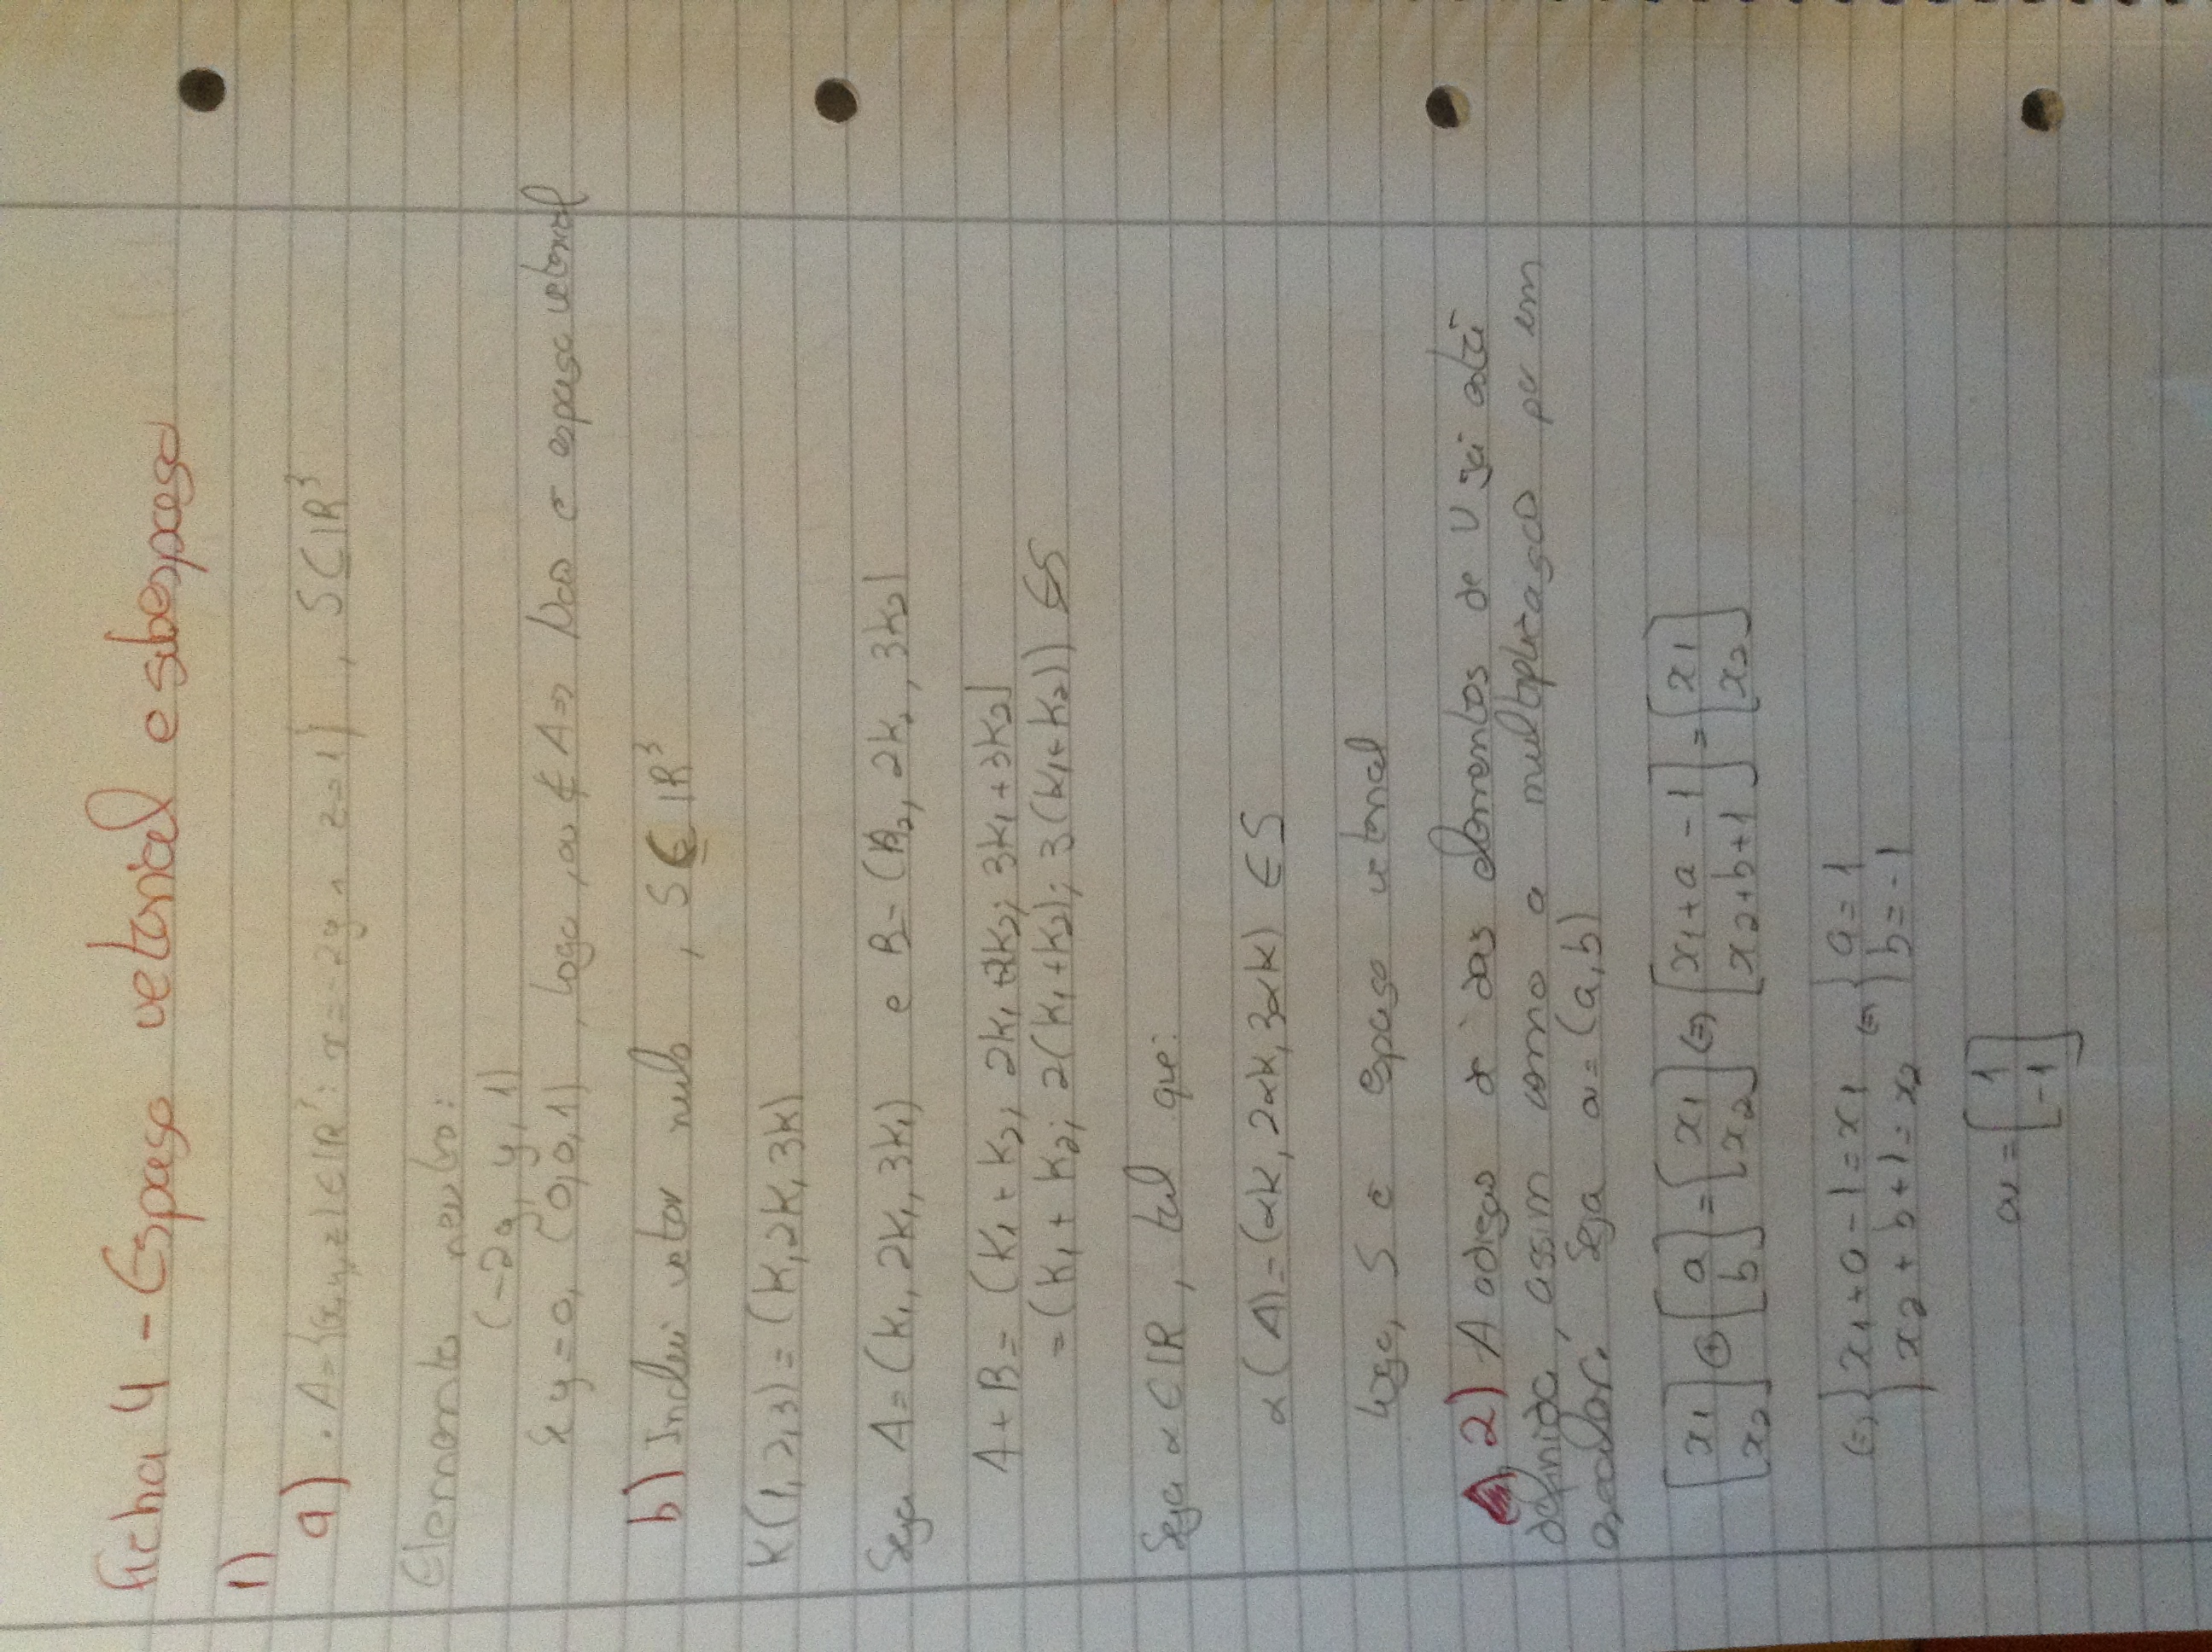 Ficha 4 - Espaço vetorial e subespaço
1)
a) . A={(x,y,z) ∈ IR³: x=-2y ∧ z=1} , S⊆IR³
Elemento neutro:
(-2y, y, 1)
Se y=0, (0,0,1) , logo, ∉ A => Não é espaço vetorial
b) Inclui vetor nulo , S⊆IR³
K(1,2,3)=(K,2K,3K)
Seja A=(K₁, 2K₁, 3K₁) e B=(K₂, 2K₂, 3K₂)
A+B=(K₁+K₂; 2K₁+2K₂; 3K₁+3K₂)
=(K₁+K₂; 2(K₁+K₂); 3(K₁+K₂)) ∈S
Seja α∈IR, tal que:
α(A)=(αK, 2αK, 3αK) ∈S
Logo, S é espaço vetorial
2) A adição de dois elementos de V já está
definida, assim como a multiplicação por um
escalar. Seja =(a,b)
[x₁ x₂] ⊕ [a b] = [x₁ x₂] (=) [x₁+a-1 x₂+b+1] = [x₁ x₂]
(=) { x₁+a-1=x₁ (=) { a=1
x₂+b+1=x₂ b=-1
= [1 -1]